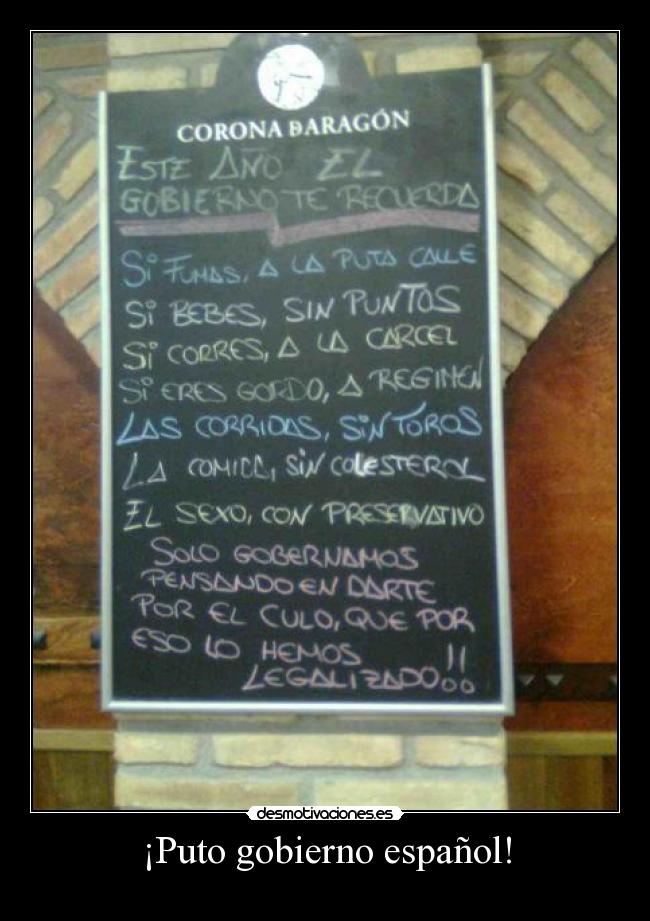 CORONA DARAGÓN
ESTE AÑO EL
GOBIERNO TE RECUERDA
Si FUMAS, A LA PUTA CALLE
Si BEBES, SIN PUNTOS
Si CORRES, A LA CARCEL
Si ERES GORDO, A REGIMEN
LAS CORRIDAS, SiN TOROS
LA COMIDA, SiN COLESTEROL
EL SEXO, CON PRESERVATIVO
SOLO GOBERNAMOS
PENSANDO EN DARTE
POR EL CULO, QUE POR
ESO LO HEMOS
LEGALIZADO!!
desmotivaciones.es
¡Puto gobierno español!